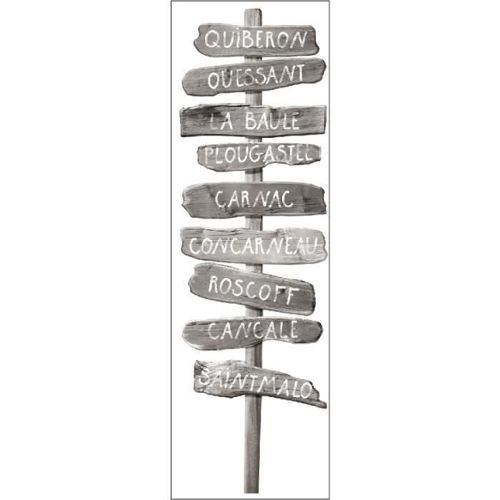 QUIBERON
OUESSANT
LA BAULE
PLOUGASTEL
CARNAC
CONCARNEAU
ROSCOFF
CANCALE
SAINTMALO